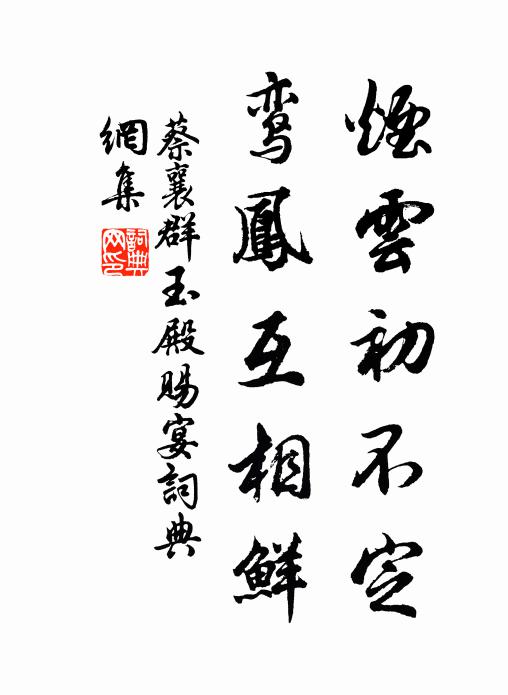 煙雲初不定
鸾鳳互相鮮
蔡襄群玉殿賜宴詞典
網集
詞典
网印